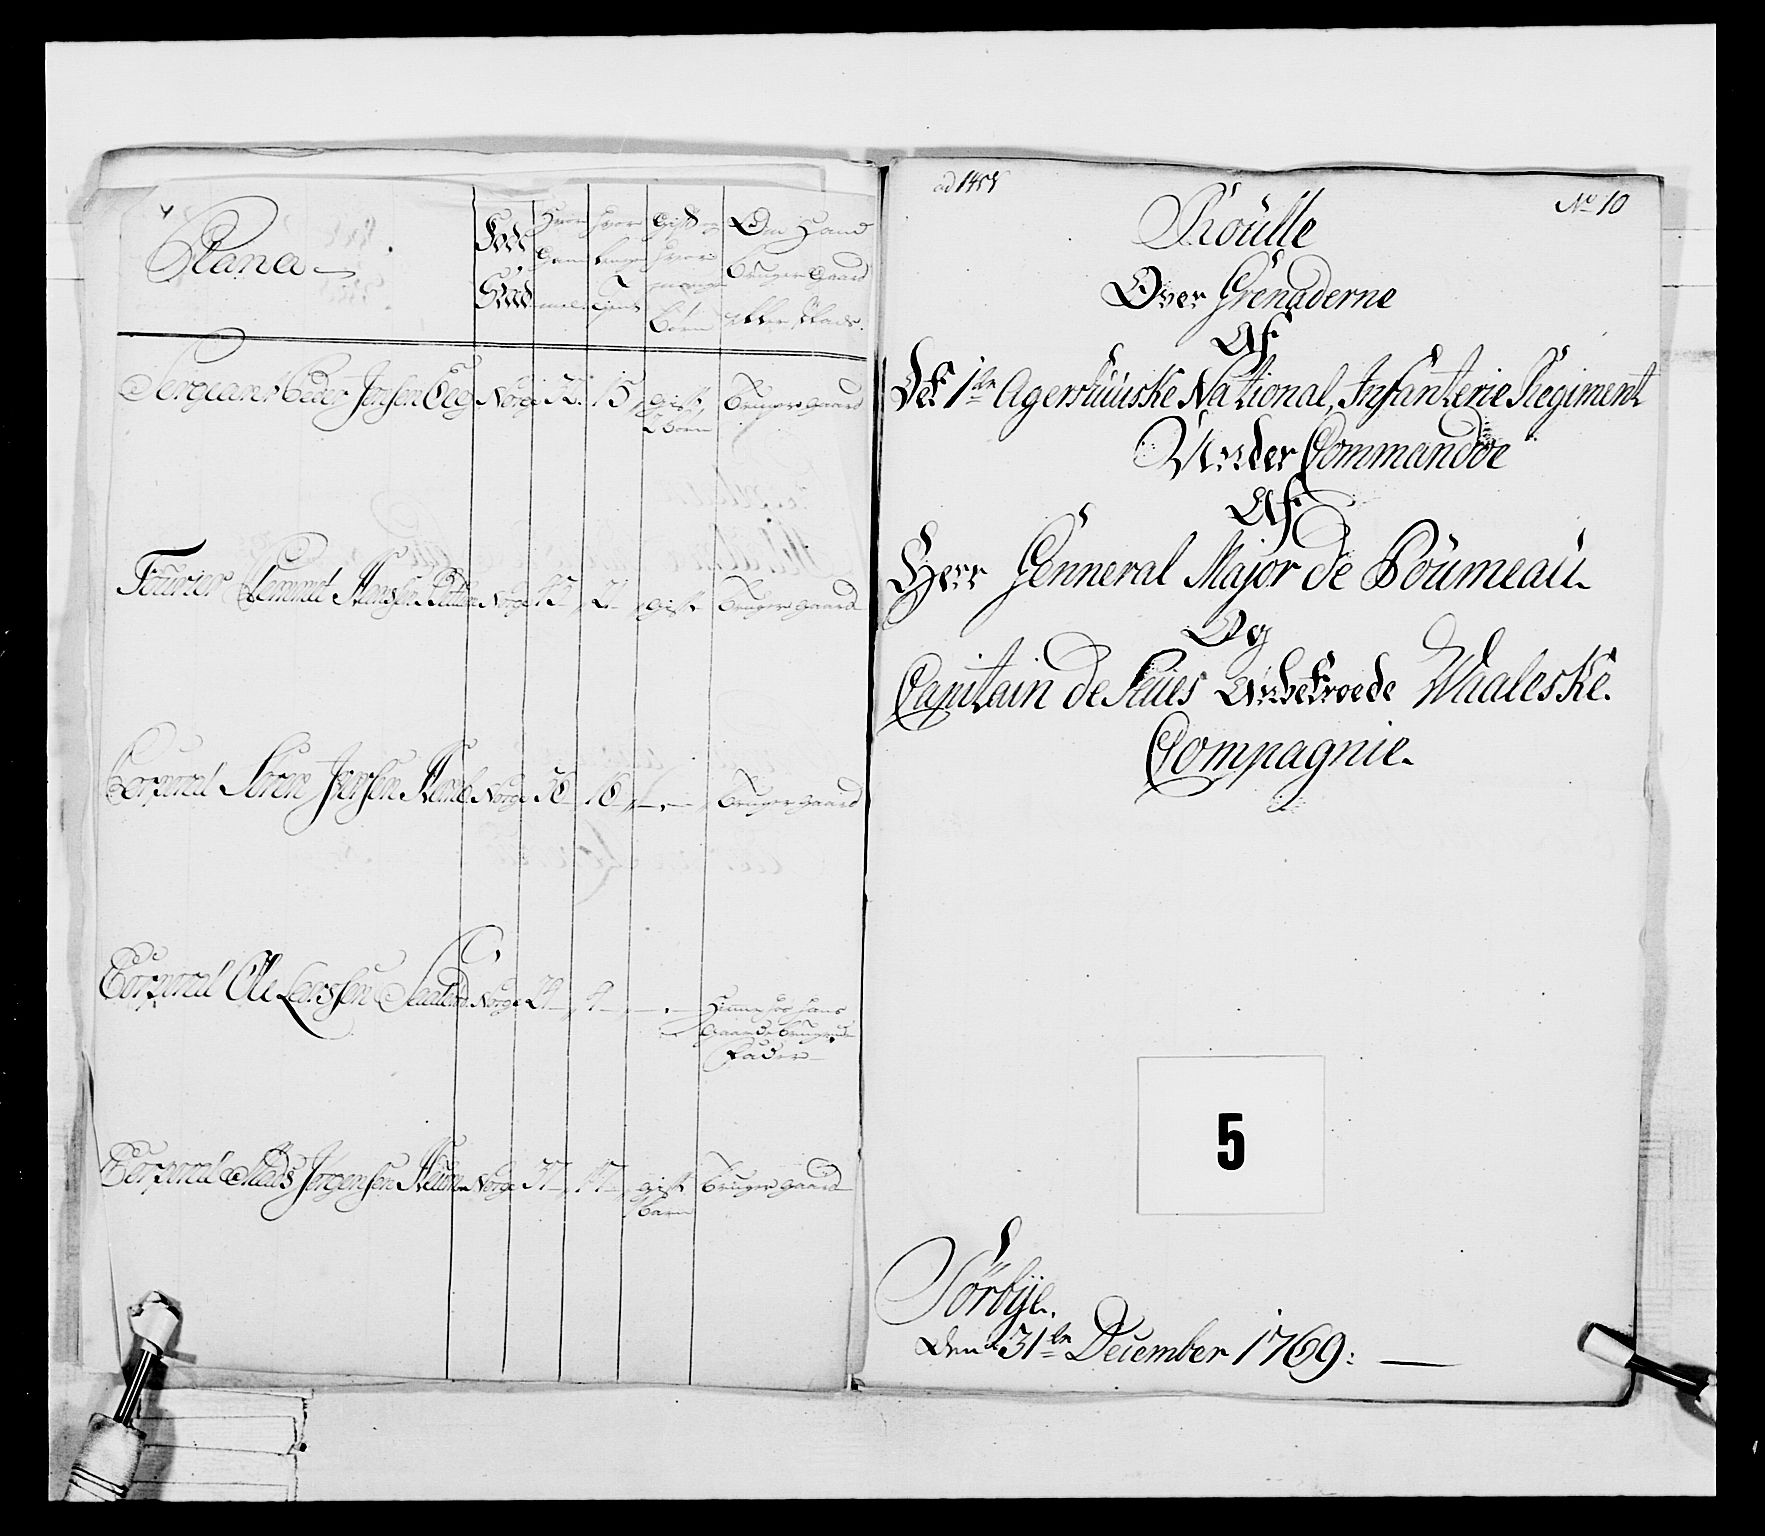 Rana
Föde
Stæd
Hvor
Gam
mel
Hvor
længe
Tient
Gift og
hvor
mange
Börn
Om Hand
bruger Gaard
eller Plads.
Sergeant Peder Jensen Eeg Norge 32. 15 gift, Bruger gaard
2 Börn
Fourier Clemmet Hansen Norge 45 21 gift Bruger gaard
Corporal Sören Iversen Norge 36 16 Bruger gaard
Corporal Ole Larssen Norge 29 9 Hiemme hos hans
Gaarde brugende
Fader
Corporal Mads Jörgensen Norge 37 17 gift Bruger gaard
1 Barn
ad 1455
No 10
Roülle
Over Grenaderne
Af
Det 1ste Agershuuiske National Infanterie Regiment
Under Commandoe
Af
Herr Genneral Major de Boümeaü
Og
Capitain de Seües Anbetroede Waaleske
Compagnie.
5
Sörbÿe.
Den 31te December 1769: